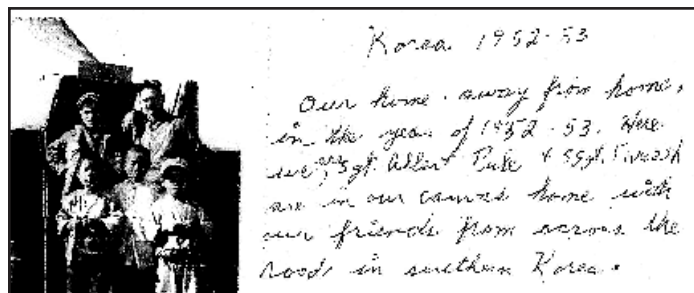 Korea 1952-53
Our home away from home,
in the year of 1952-53. Here
we, Sgt. Albert & SSgt.
are in our canvas home with
our friends from across the
road, in southern Korea.